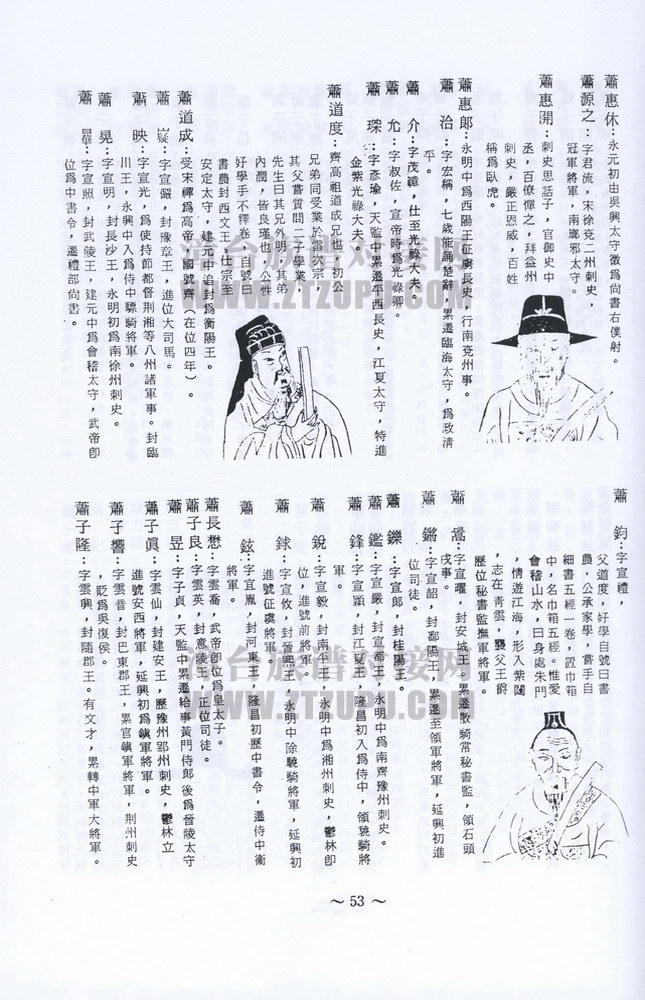 蕭惠休：永元初由吳興太守徵爲尙書右僕射。
蕭源之：字君流，宋徐兗二州刺史，
冠軍將軍，南瑯邪太守。
蕭惠開：刺史思話子，官御史中
丞，百僚憚之，拜益州
刺史，嚴正恩威，百姓
稱爲臥虎。
蕭惠郎：永明中爲西陽王征虜長史，行南兗州事。
蕭洽：字宏稱，七歲能誦楚辭，累遷臨海太守，爲政清
平。
蕭介：字茂鏡，仕至光祿大夫。
蕭允：字叔佐，宣帝時爲光祿卿。
蕭琛：字彥瑜，天監中累遷平西長史，江夏太守，特進
金紫光祿大夫。
蕭道度：齊高祖道成兄也，初公
兄弟同受業於雷次宗，
其父嘗質問二子學業，
先生曰其兄外明，其弟
內潤，皆良瑾也，公性
好學手不釋卷，自號曰
書農封西文王，仕宗至
安定太守，建元中追封爲衡陽王。
蕭道成：受宋禪爲高帝，國號齊（在位四年）。
蕭嶷：字宣儼，封豫章王，進位大司馬。
蕭映：字宣光，爲使持節都督荆湘等八州諸軍事。封臨
川王，永興中入爲侍中驃騎將軍。
蕭晃：字宣明，封長沙王，永明初爲南徐州刺史。
蕭曅：字宣照，封武陵王，建元中爲會稽太守，武帝卽
位爲中書令，遷禮部尙書。
蕭鈞：字宣禮，
父道度，好學自號曰書
農，公承家學，嘗手自
細書五經一卷，置巾箱
中，名巾箱五經。惟愛
會稽山水，曰身處朱門
，情遊江海，形入紫闥
，志在靑雲，襲父王爵
歷位秘書監撫軍將軍。
蕭暠：字宣曜，封安城王，累遷散騎常秘書監，領石頭
戌事。
蕭鏘：字宣韶，封鄱陽王，累遷至領軍將軍，延興初進
位司徒。
蕭鑠：字宣郎，封桂陽王。
蕭鑑：字宣嚴，封宣都王，永明中爲南齊豫州刺史。
蕭鋒：字宣穎，封江夏王，隆昌初入爲侍中，領驍騎將
軍。
蕭銳：字宣毅，封南平王，永明中爲湘州刺史，鬱林卽
位，進號前將軍。
蕭銶：字宣攸，封晉熙王，永明中除驍騎將軍，延興初
進號征虜將軍。
蕭鉉：字宣胤，封河東王，隆昌初歷中書令，遷侍中衛
將軍。
蕭長懋：字雲喬，武帝卽位爲皇太子。
蕭子良：字雲英，封意陵王，正位司徒。
蕭昱：字子貞，天監中累遷給事黃門侍郎後爲晉陵太守
蕭子眞：字雲仙，封建安王，歷豫州郢州刺史，鬱林立
進號安西將軍，延興初爲鎭軍將軍。
蕭子響：字雲音，封巴東郡王，累官鎭軍將軍，荆州刺史
，貶爲吳復侯。
蕭子隆：字雲興，封隨郡王。有文才，累轉中軍大將軍。
～ 53 ～
清台族谱对接网
WWW.ZTZUPU.COM
清台族谱对接网
WWW.ZTZUPU.COM